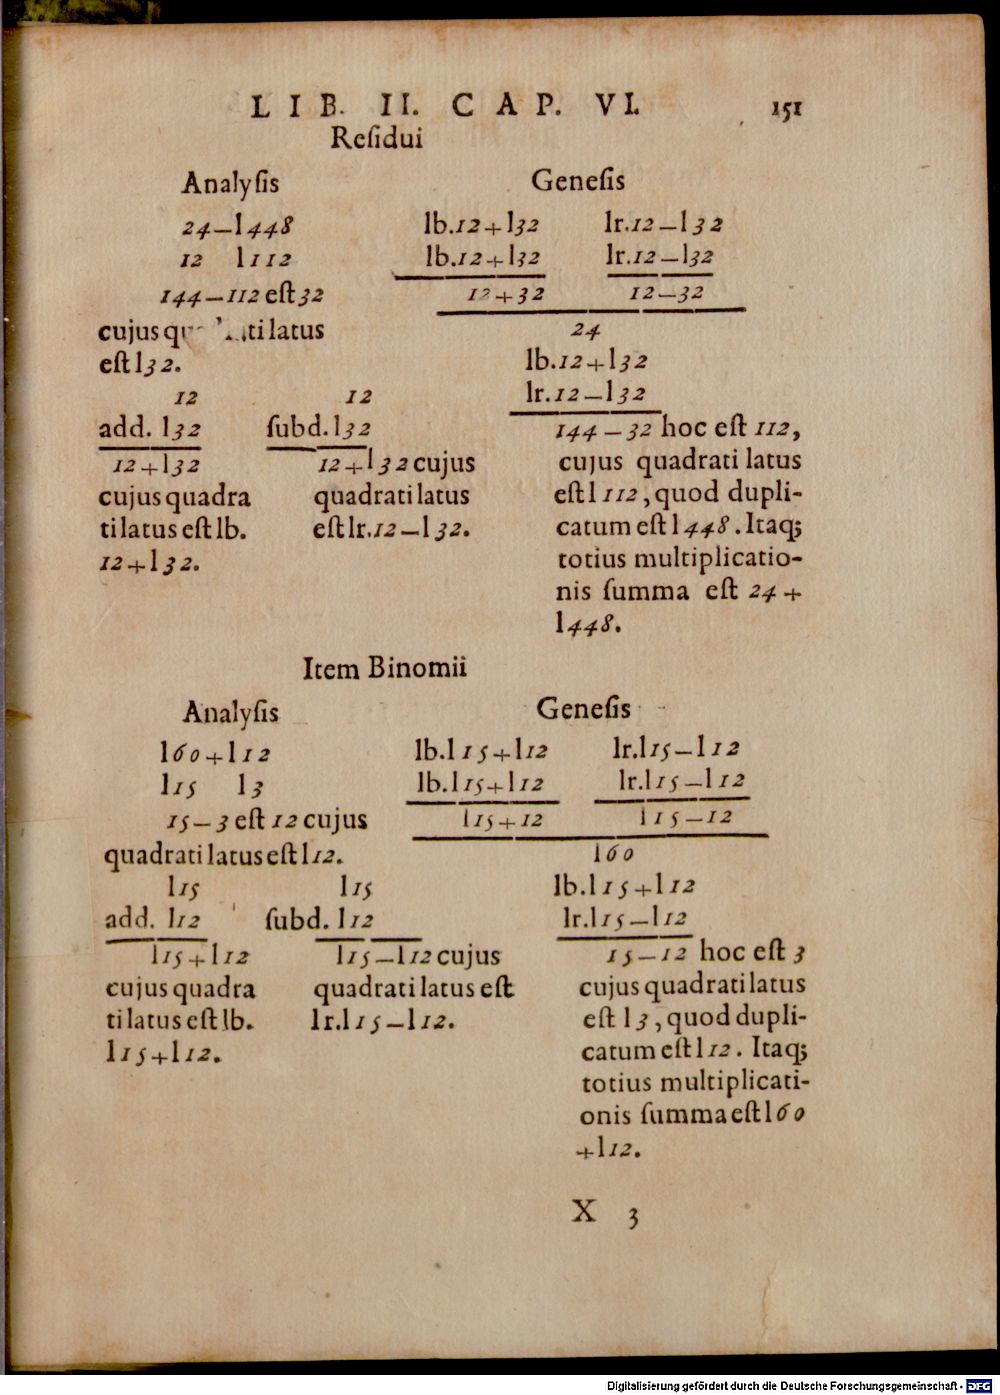 LIB. II. CAP. VI. 151
Reſidui
Analyſis
24—l448
12 l112
144—112 eſt 32
cujus ti latus
eſt l32.
12
add. l32
12+l32
cujus quadra
ti latus eſt lb.
12+l32.
12
ſubd. l32
12+l32 cujus
quadrati latus
eſt lr.12—l32.
Geneſis
lb.12+l32 lr.12—l32
lb.12+l32 lr.12—l32
12+32 12—32
24
lb.12+l32
lr.12—l32
144—32 hoc eſt 112,
cujus quadrati latus
eſt l112, quod dupli-
catum eſt l448. Itaq;
totius multiplicatio-
nis ſumma eſt 24+
l448.
Item Binomii
Analyſis
l60+l12
l15 l3
15—3 eſt 12 cujus
quadrati latus eſt l12.
l15
add. l12
l15+l12
cujus quadra
ti latus eſt lb.
l15+l12.
l15
ſubd. l12
l15—l12 cujus
quadrati latus eſt
lr.l15—l12.
Geneſis
lb.l15+l12 lr.l15—l12
lb.l15+l12 lr.l15—l12
l15+12 l15—12
l60
lb.l15+l12
lr.l15—l12
15—12 hoc eſt 3
cujus quadrati latus
eſt l3, quod dupli-
catum eſt l12. Itaq;
totius multiplicati-
onis ſumma eſt l60
+l12.
X 3
Digitalisierung gefördert durch die Deutsche Forschungsgemeinschaft - DFG